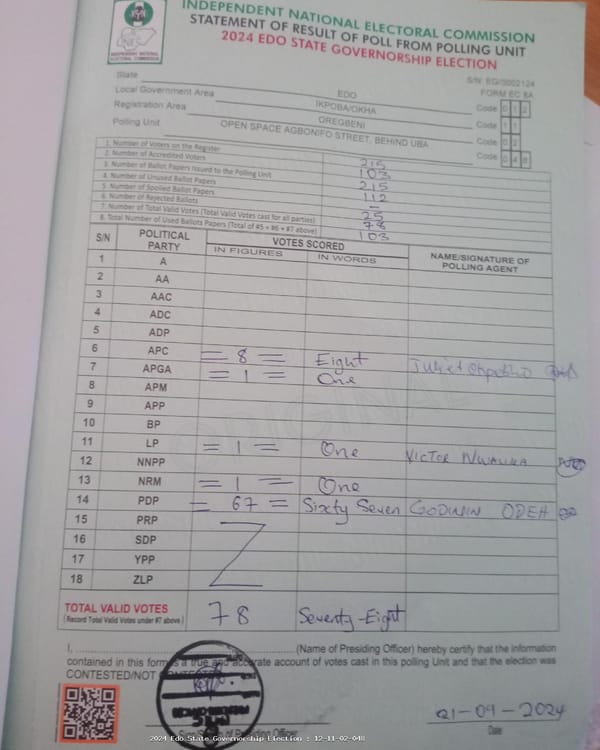 INDEPENDENT NATIONAL ELECTORAL COMMISSION
STATEMENT OF RESULT OF POLL FROM POLLING UNIT
2024 EDO STATE GOVERNORSHIP ELECTION
INDEPENDENT NATIONAL
ELECTORAL COMMISSION
S/N: EG/0002124
FORM EC 8A
State EDO Code 0 1 2
Local Government Area IKPOBA/OKHA Code 1 1
Registration Area OREGBENI Code 0 2
Polling Unit OPEN SPACE AGBONIFO STREET, BEHIND UBA Code 0 4 8
1. Number of Voters on the Register 215
2. Number of Accredited Voters 103
3. Number of Ballot Papers Issued to the Polling Unit 215
4. Number of Unused Ballot Papers 112
5. Number of Spoiled Ballot Papers –
6. Number of Rejected Ballots 25
7. Number of Total Valid Votes (Total Valid Votes cast for all parties) 78
8. Total Number of Used Ballots Papers (Total of #5 + #6 + #7 above) 103
S/N POLITICAL PARTY VOTES SCORED NAME/SIGNATURE OF POLLING AGENT
IN FIGURES IN WORDS
1 A
2 AA
3 AAC
4 ADC
5 ADP
6 APC = 8 = Eight
7 APGA = 1 = One
8 APM
9 APP
10 BP
11 LP = 1 = One VICTOR
12 NNPP
13 NRM = 1 = One
14 PDP = 67 = Sixty Seven GODWIN ODEH
15 PRP
16 SDP
17 YPP
18 ZLP
TOTAL VALID VOTES 78 Seventy-Eight
(Record Total Valid Votes under #7 above)
I, ........................ (Name of Presiding Officer) hereby certify that the information
contained in this form is a true and accurate account of votes cast in this polling Unit and that the election was
CONTESTED/NOT CONTESTED
21-09-2024
Date
2024 Edo State Governorship Election : 12-11-02-048